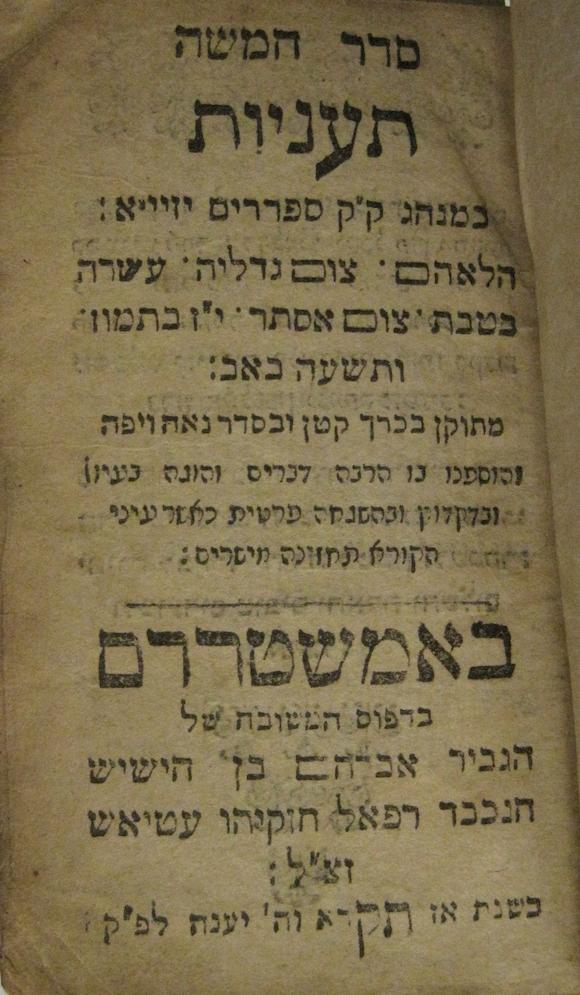 סדר חמשה
תעניות
כמנהג ק״ק ספרדים יזייא׃
הלאהם · צום גדליה · עשרה
בטבת · צום אסתר · י״ז בתמוז ·
ותשעה באב׃
מתוקן בכרך קטן ובסדר נאה ויפה
והוספנו בו הרבה דברים והוגה בעיון
ובדקדוק ובהשגחה פרטית כאשר עיני
הקורא תחזונה מישרים׃
באמשטרדם
בדפוס המשובח של
הגביר אברהם בן הישיש
הנכבד רפאל חזקיהו עטיאש
זצ״ל׃
בשנת אז תקרא וה' יענה לפ״ק